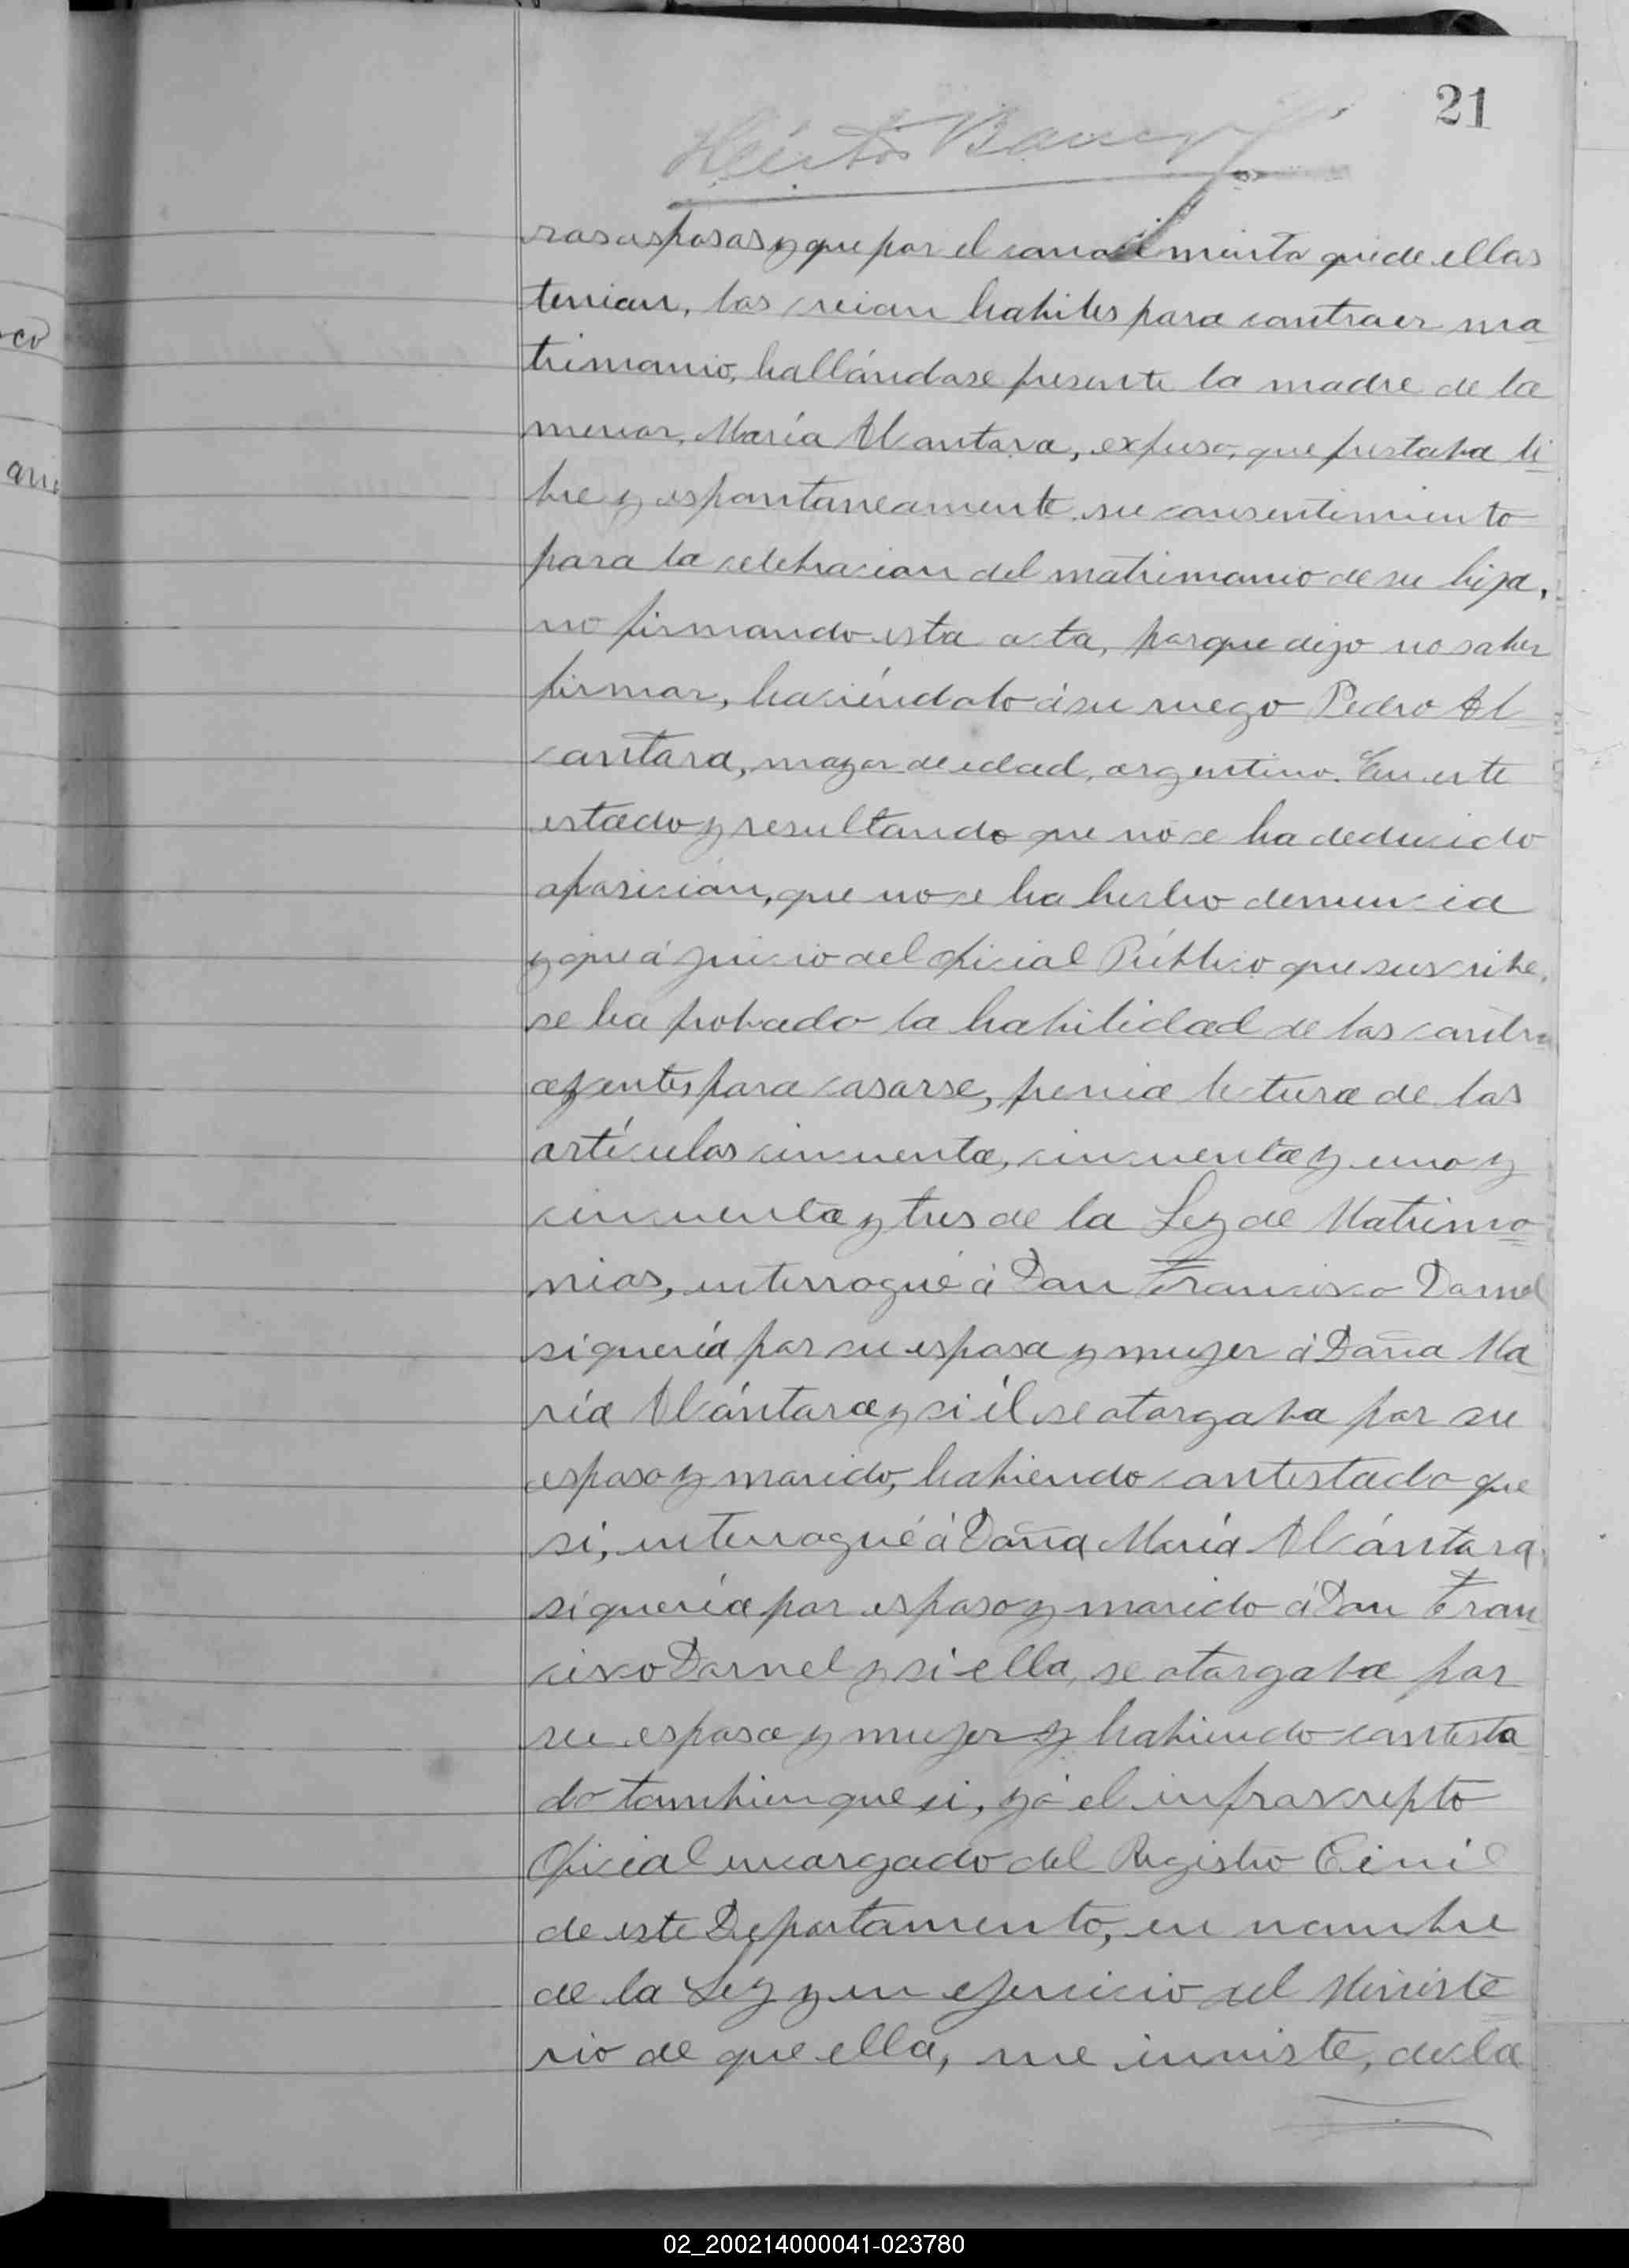 21
Héctor
ros esposos y que por el conocimiento que de ellos
tenian, los creian habiles para contraer ma
trimonio, hallándose presente la madre de la
menor, María Alcantara, expuso, que prestaba li
bre y espontaneamente su consentimiento
para la celebracion del matrimonio de su hija,
no firmando esta acta, porque dijo no saber
firmar, haciéndolo á su ruego Pedro Al
cantara, mayor de edad, argentino. En este
estado y resultando que no se ha deducido
oposición, que no se ha hecho denuncia
y que á juicio del Oficial Público que suscribe,
se ha probado la habilidad de los contra
yentes para casarse, previa lectura de los
artículos cincuenta, cincuenta y uno y
cincuenta y tres de la Ley de Matrimo
nios, interrogué á Don Francisco Darnel
si quería por su esposa y mujer á Doña Ma
ría Alcántara y si él se otorgaba por su
esposo y marido, habiendo contestado que
si, interrogué á Doña María Alcántara
si quería por esposo y marido á Don Fran
cisco Darnel y si ella, se otorgaba por
su esposa y mujer y habiendo contesta
do tambien que si, yó el infrascripto
Oficial encargado del Registro Civil
de este Departamento, en nombre
de la Ley y en ejercicio del Ministe
rio de que ella, me inviste, decla
co
02_200214000041-023780